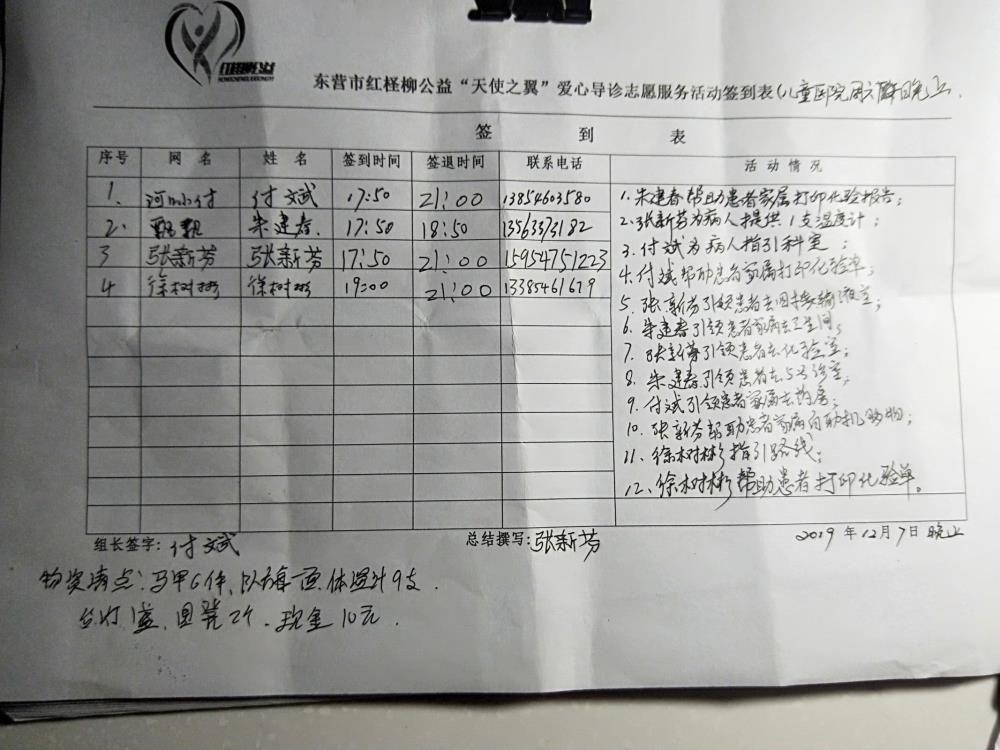 红柽柳公益
东营市红柽柳公益“天使之翼”爱心导诊志愿服务活动签到表(儿童医院周六 晚上
签到表
序号 网名 姓名 签到时间 签退时间 联系电话 活动情况
1. 河小付 付斌 17:50 21:00 13854603580
2. 飘飘 朱建春. 17:50 18:50 13563373182
3 张新芬 张新芬 17:50 21:00 15954751223
4 徐树彬 徐树彬 19:00 21:00 13385461679
1. 朱建春帮助患者家属打印化验报告;
2. 张新芬为病人提供1支温度计;
3. 付斌为病人指引科室;
4. 付斌帮助患者家属打印化验单;
5. 张新芬引领患者去四楼输液室;
6. 朱建春引领患者家属去卫生间;
7. 张新芬引领患者去化验室;
8. 朱建春引领患者去5号诊室;
9. 付斌引领患者家属去药房;
10. 张新芬帮助患者家属自助机购物;
11. 徐树彬指引路线;
12、徐树彬帮助患者打印化验单。
组长签字: 付斌 总结撰写: 张新芬 2019年12月7日 晚上
物资清点: 马甲6件、队旗一面、体温计9支.
台灯1盏、圆凳2个、现金10元.